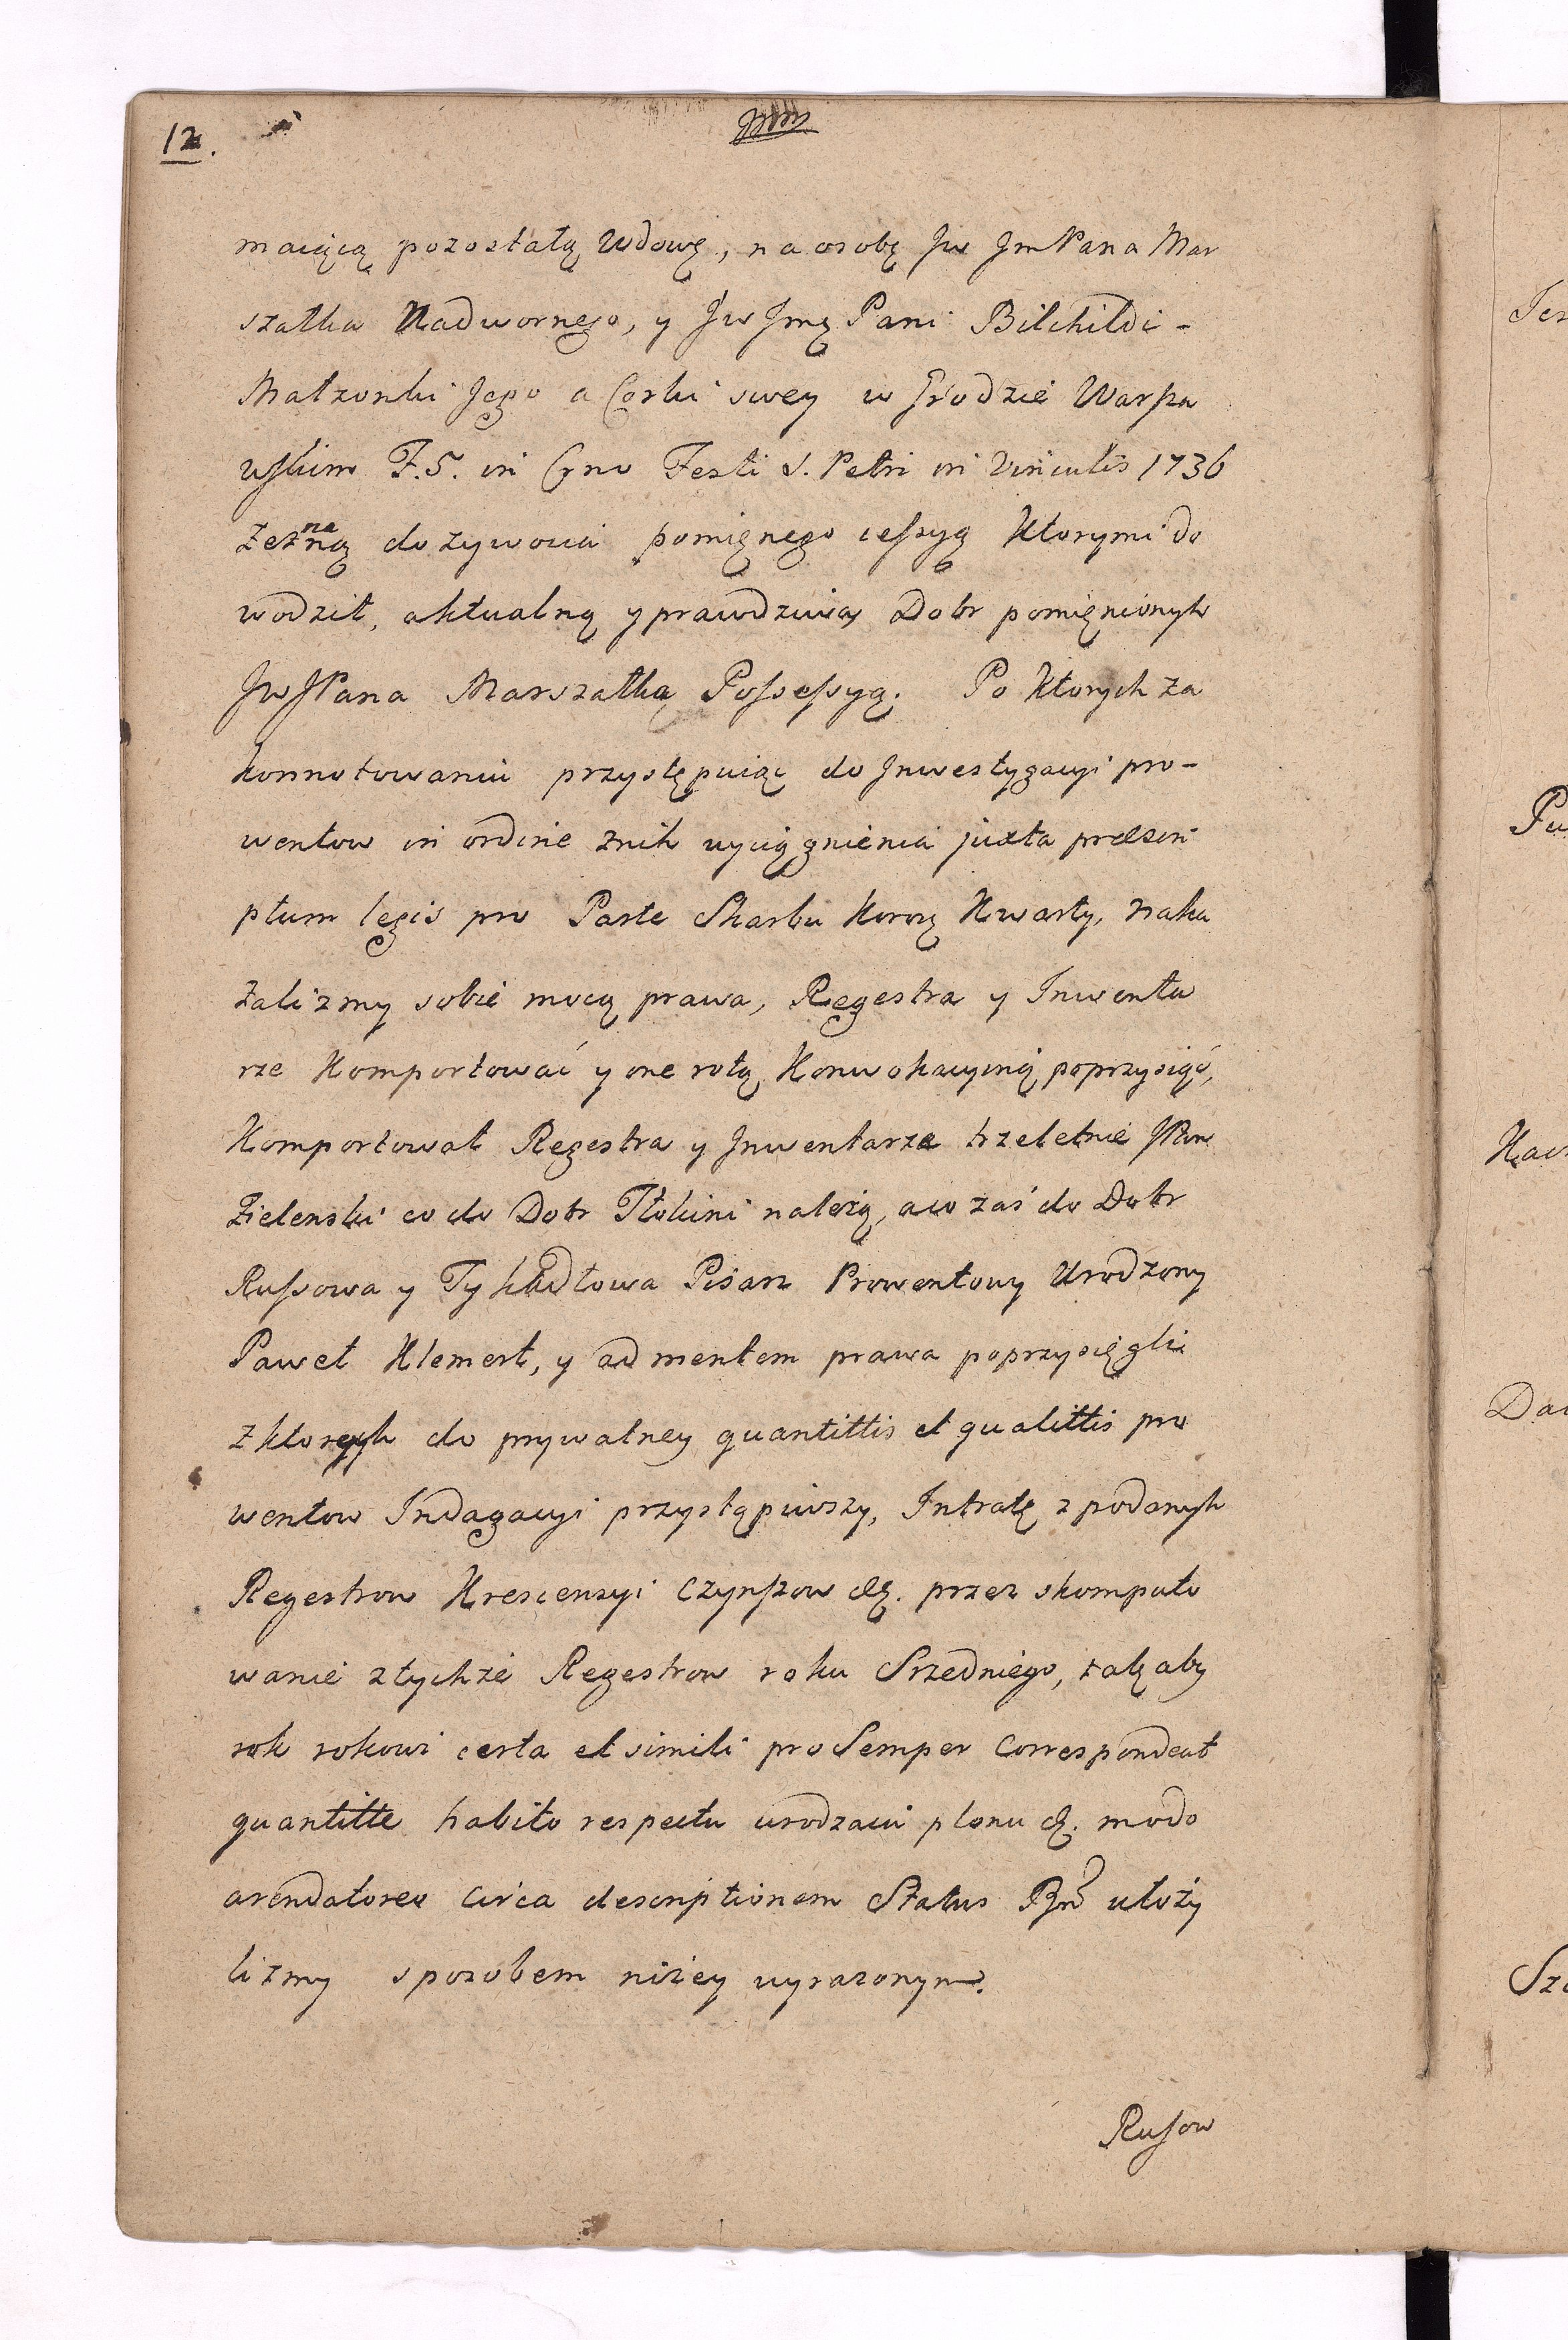 12.
maiącą pozostałą Wdowę, na osobę Jw JmPana Mar
szałka Nadwornego, y Jw Jmę Pani Bilchildi -
Małzonki Jego a Corki swey w Grodzie Warsza
wskim F. 5. in Crno Festi S. Petri in Vinculis 1736
zezna ną dozywocia pomięnego cessyą Ktorymi do
wodził, aktualną y prawdziwą Dobr pomięnionych
JwJPana Marszałka Possessyą. Po Ktorych za
konnotowaniu przystępuiąc do Jnwestygacyi pro-
wentow in ordine znich uyciągnienia juxta prescri
ptum legis pro Parte Skarbu Korony Kwarty, naka
zalizmy sobie mocą prawa, Regestra y Inwenta
rze Komportować y one rotą Konwokacyiną poprzysiąć,
Komportował Regestra y Jnwentarze trzeletnie JPan
Zielenski co do Dobr Tłokini należą, a co zaś do Dobr
Russowa y Tykadłowa Pisarz Prowentowy Urodzony
Paweł Klemert, y ad mentem prawa poprzysięgli
z ktorych do prywatney quantittis et qualittis pro
wentow Indagacyi przystąpiwszy, Intratę z podanych
Regestrow Krescensyi Czynszow &c. przez skomputo
wanie ztychże Regestrow roku Srzedniego, tak aby
rok rokowi certa et simili pro Semper Correspondeat
quantitte habito respectu urodzaiu plonu &c. modo
arendatoreo circa descriptionem Status ułoży
lizmy sposobem niżey wyrazonym.
Rusow
Pu
Da